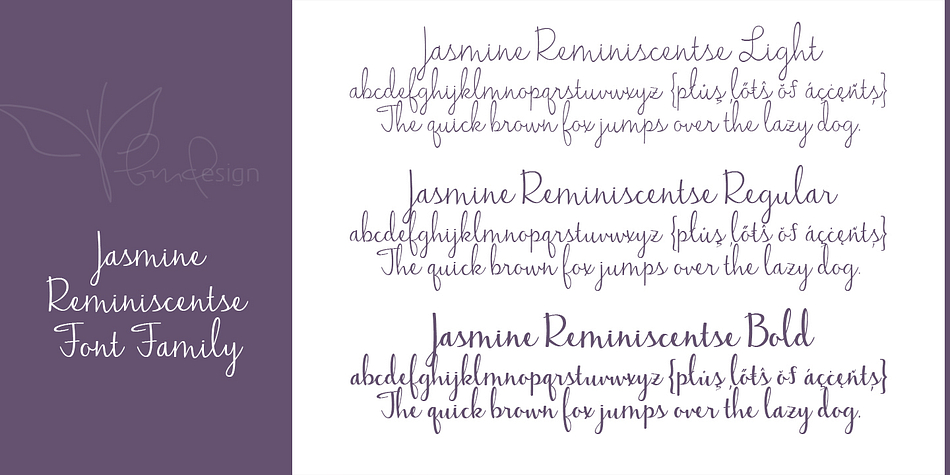 bmdesign
Jasmine
Reminiscentse
Font Family
Jasmine Reminiscentse Light
abcdefghijklmnopqrstuvwxyz {płúş ľőťŝ ŏf áçċęñţş}
The quick brown fox jumps over the lazy dog.
Jasmine Reminiscentse Regular
abcdefghijklmnopqrstuvwxyz {płúş ľőťŝ ŏf áçċęñţş}
The quick brown fox jumps over the lazy dog.
Jasmine Reminiscentse Bold
abcdefghijklmnopqrstuvwxyz {płúş ľőťŝ ŏf áçċęñţş}
The quick brown fox jumps over the lazy dog.